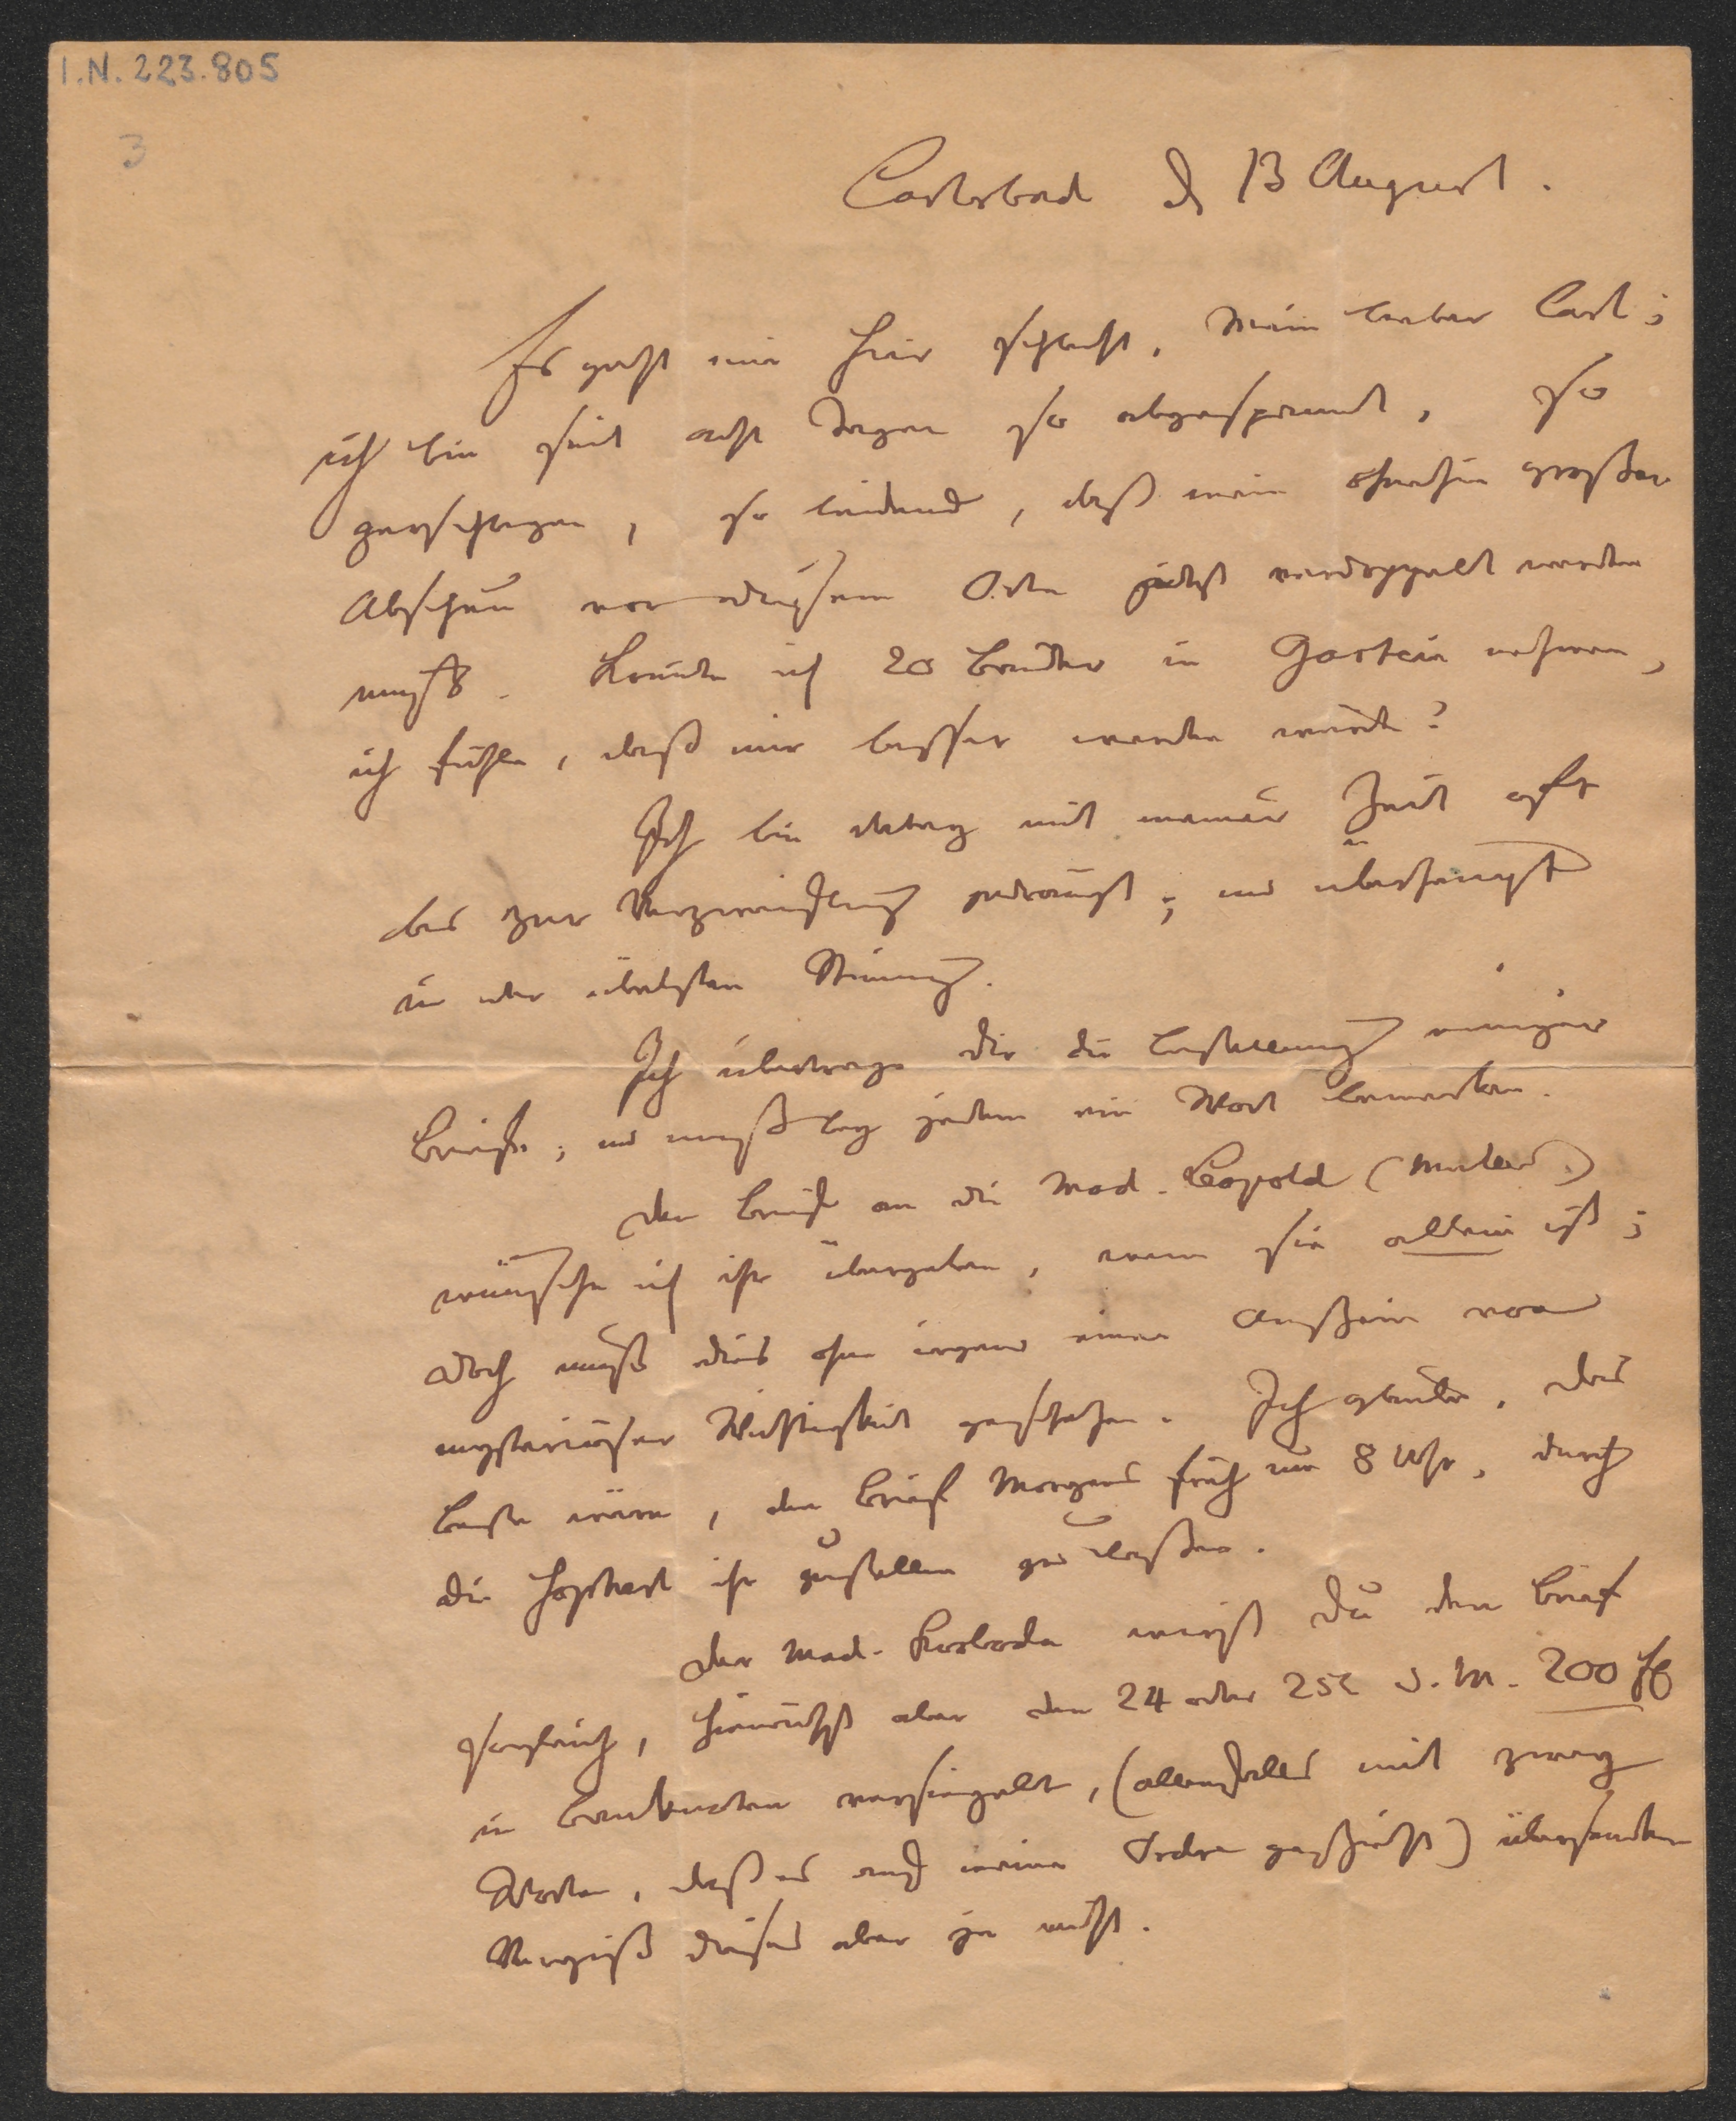 I.N. 223.805
3
Carlsbad d 13 August.
Es geht mir hier schlecht, mein lieber Carl;
ich bin seit acht Tagen so abgespannt, so
zerschlagen, so leidend, daß mein ohnehin großer
Abscheu vor diesem Orte jetzt verdoppelt werden
muß. Könnte ich 20 Bäder in Gastein nehmen,
ich fühle, daß mir besser werden würde?
Ich bin dabey mit meiner Zeit oft
bis zur Verzweiflung gedrängt; und überhaupt
in der übelsten Stimmung.
Ich übertrage dir die Bestellung einiger
Briefe; und muß bey jedem ein Wort bemerken.
Den Brief an die Mad. Leopold (Mutter)
wünsche ich ihr übergeben, wenn sie allein ist;
doch muß dies ohne irgend einen Anschein von
mysteriöser Wichtigkeit geschehen. Ich glaube, das
Beste wäre, den Brief Morgens früh um 8 Uhr, durch
die ihr zustellen zu lassen.
Der Mad. wirst Du den Brief
sogleich, hienächst aber den 24 oder 25t d. M. 200 fl
in Banknoten versiegelt, (allenfalls mit zwey
Worten, daß es auf meine Ordre geschieht) übersenden
Vergiß dieses aber ja nicht.